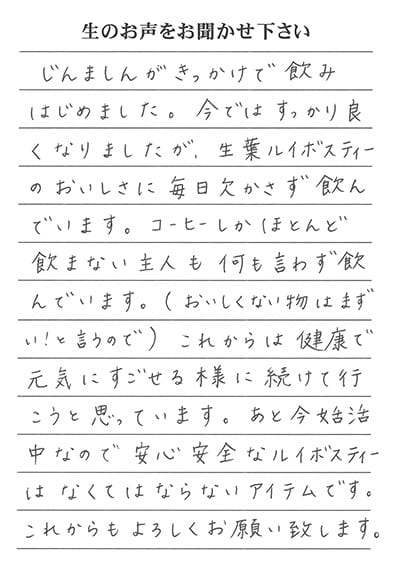 生のお声をお聞かせ下さい
じんましんがきっかけで飲み
はじめました。今ではすっかり良
くなりましたが、生葉ルイボスティー
のおいしさに毎日欠かさず飲ん
でいます。コーヒーしかほとんど
飲まない主人も何も言わず飲
んでいます。(おいしくない物はまず
い!と言うので)これからは健康で
元気にすごせる様に続けて行
こうと思っています。あと今妊活
中なので安心安全なルイボスティー
はなくてはならないアイテムです。
これからもよろしくお願い致します。